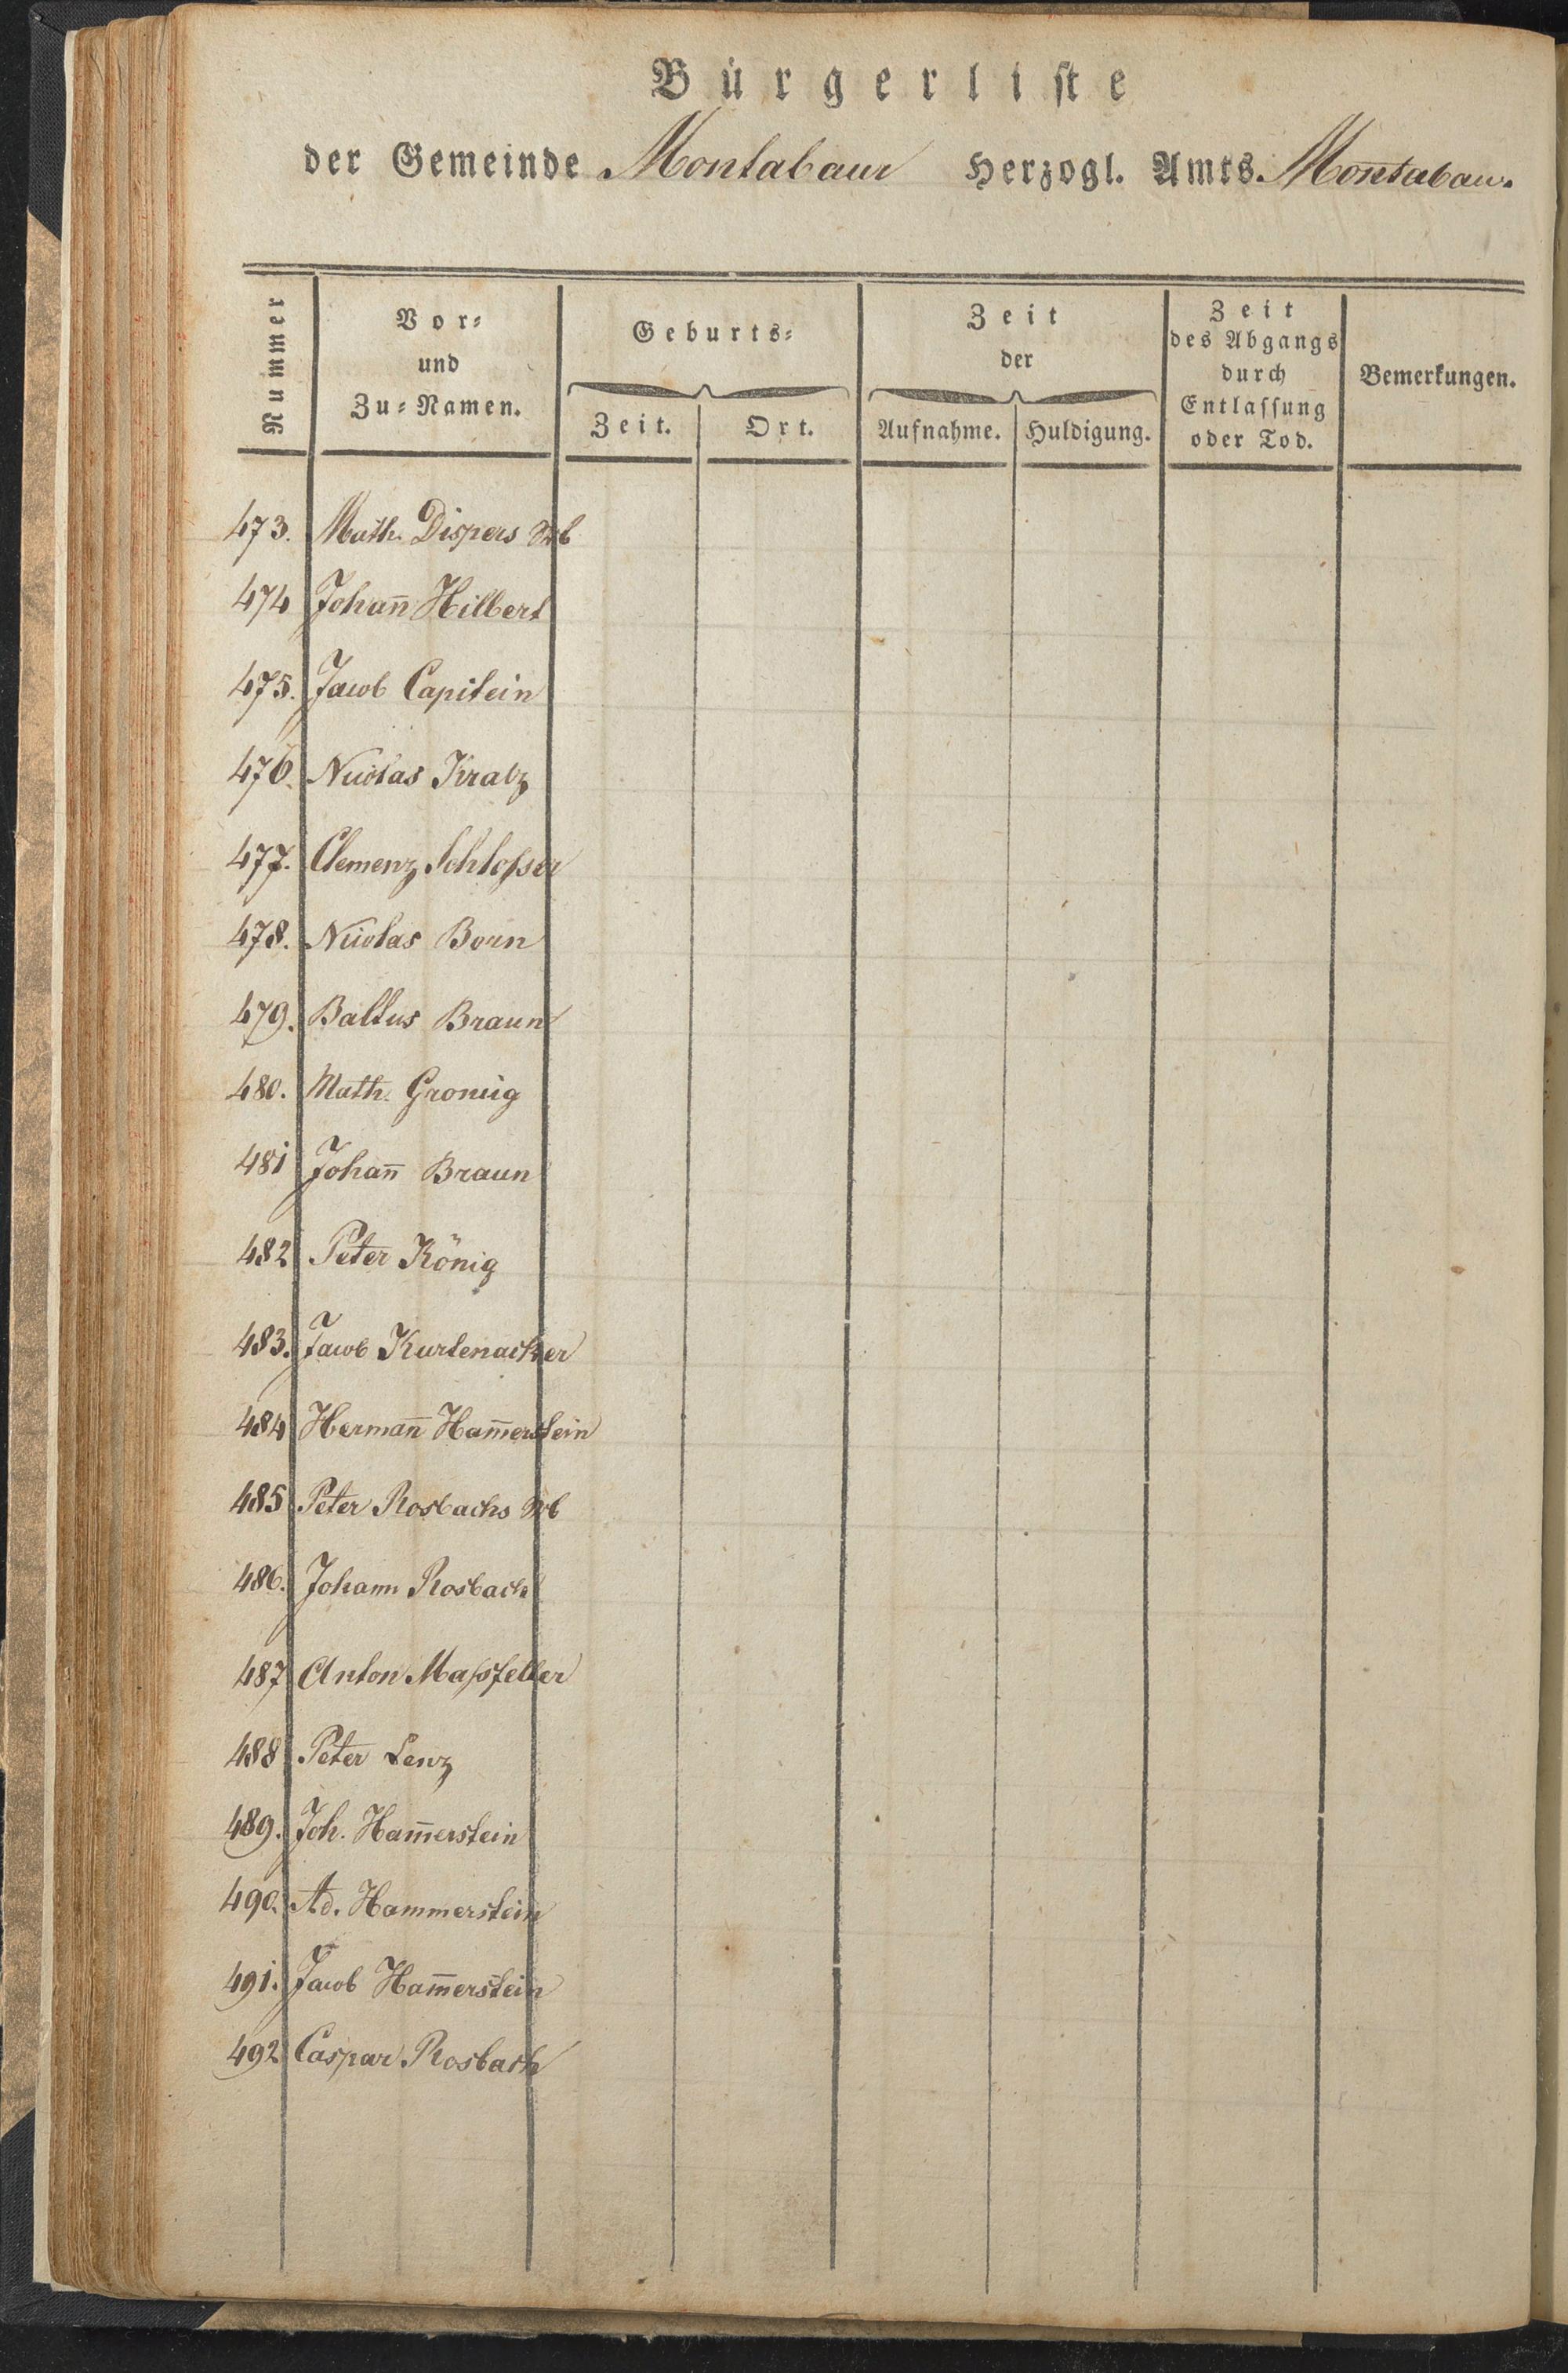 Bürgerliste
der Gemeinde Montabaur Herzogl. Amts Montabaur.
Nummer
Vor-
und
Zu-Namen.
Geburts-
Zeit. Ort.
Zeit
der
Aufnahme. Huldigung.
Zeit
des Abgangs
durch
Entlassung
oder Tod.
Bemerkungen.
473. Math. Dispers Wb
474 Johan̄ Hilbert
475. Jacob Capitein
476. Nicolas Kratz
477. Clemenz Schlosser
478. Nicolas Born
479. Baltus Braun
480. Math. Gromig
481 Johan̄ Braun
482 Peter König
483. Jacob Kurtenacker
484 Herman̄ Ham̄erstein
485 Peter Rosbachs Wb
486. Johann Rosbach
487 Anton Massfeller
488 Peter Lenz
489. Joh. Ham̄erstein
490. Ad. Hammerstein
491. Jacob Ham̄erstein
492 Caspar Rosbach